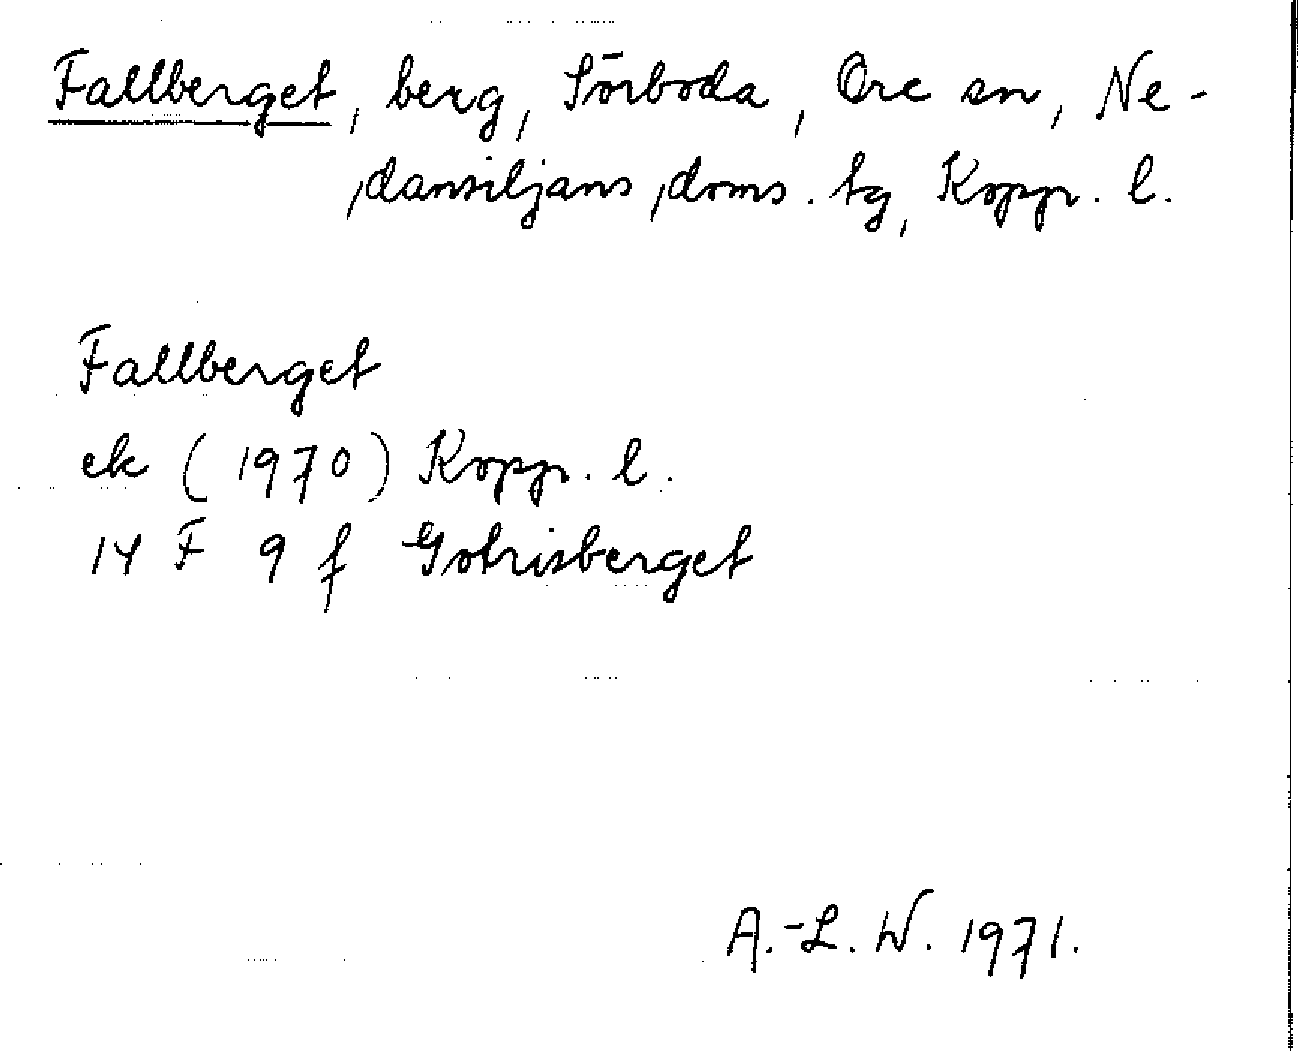 Fallberget, berg, Sörboda, Ore sn, Ne-
dansiljans doms. tg, Kopp. l.
Fallberget
ek (1970) Kopp. l.
14 F 9 f Gotrisberget
A.-L. W. 1971.